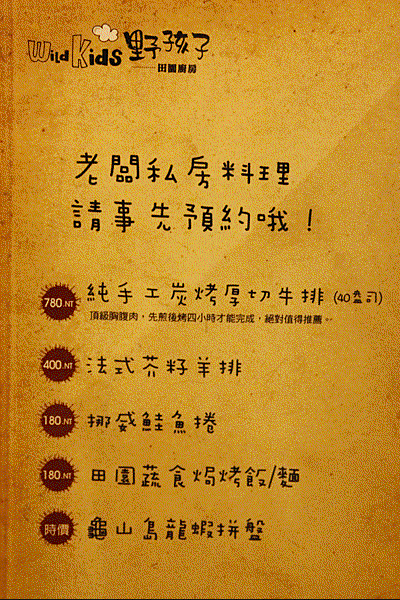 Wild Kids 野孩子
田園廚房
老闆私房料理
請事先預約哦！
780.NT 純手工炭烤厚切牛排 (40盎司)
頂級胸腹肉，先煎後烤四小時才能完成，絕對值得推薦。
400.NT 法式芥籽羊排
180.NT 挪威鮭魚捲
180.NT 田園蔬食焗烤飯/麵
時價 龜山島龍蝦拼盤